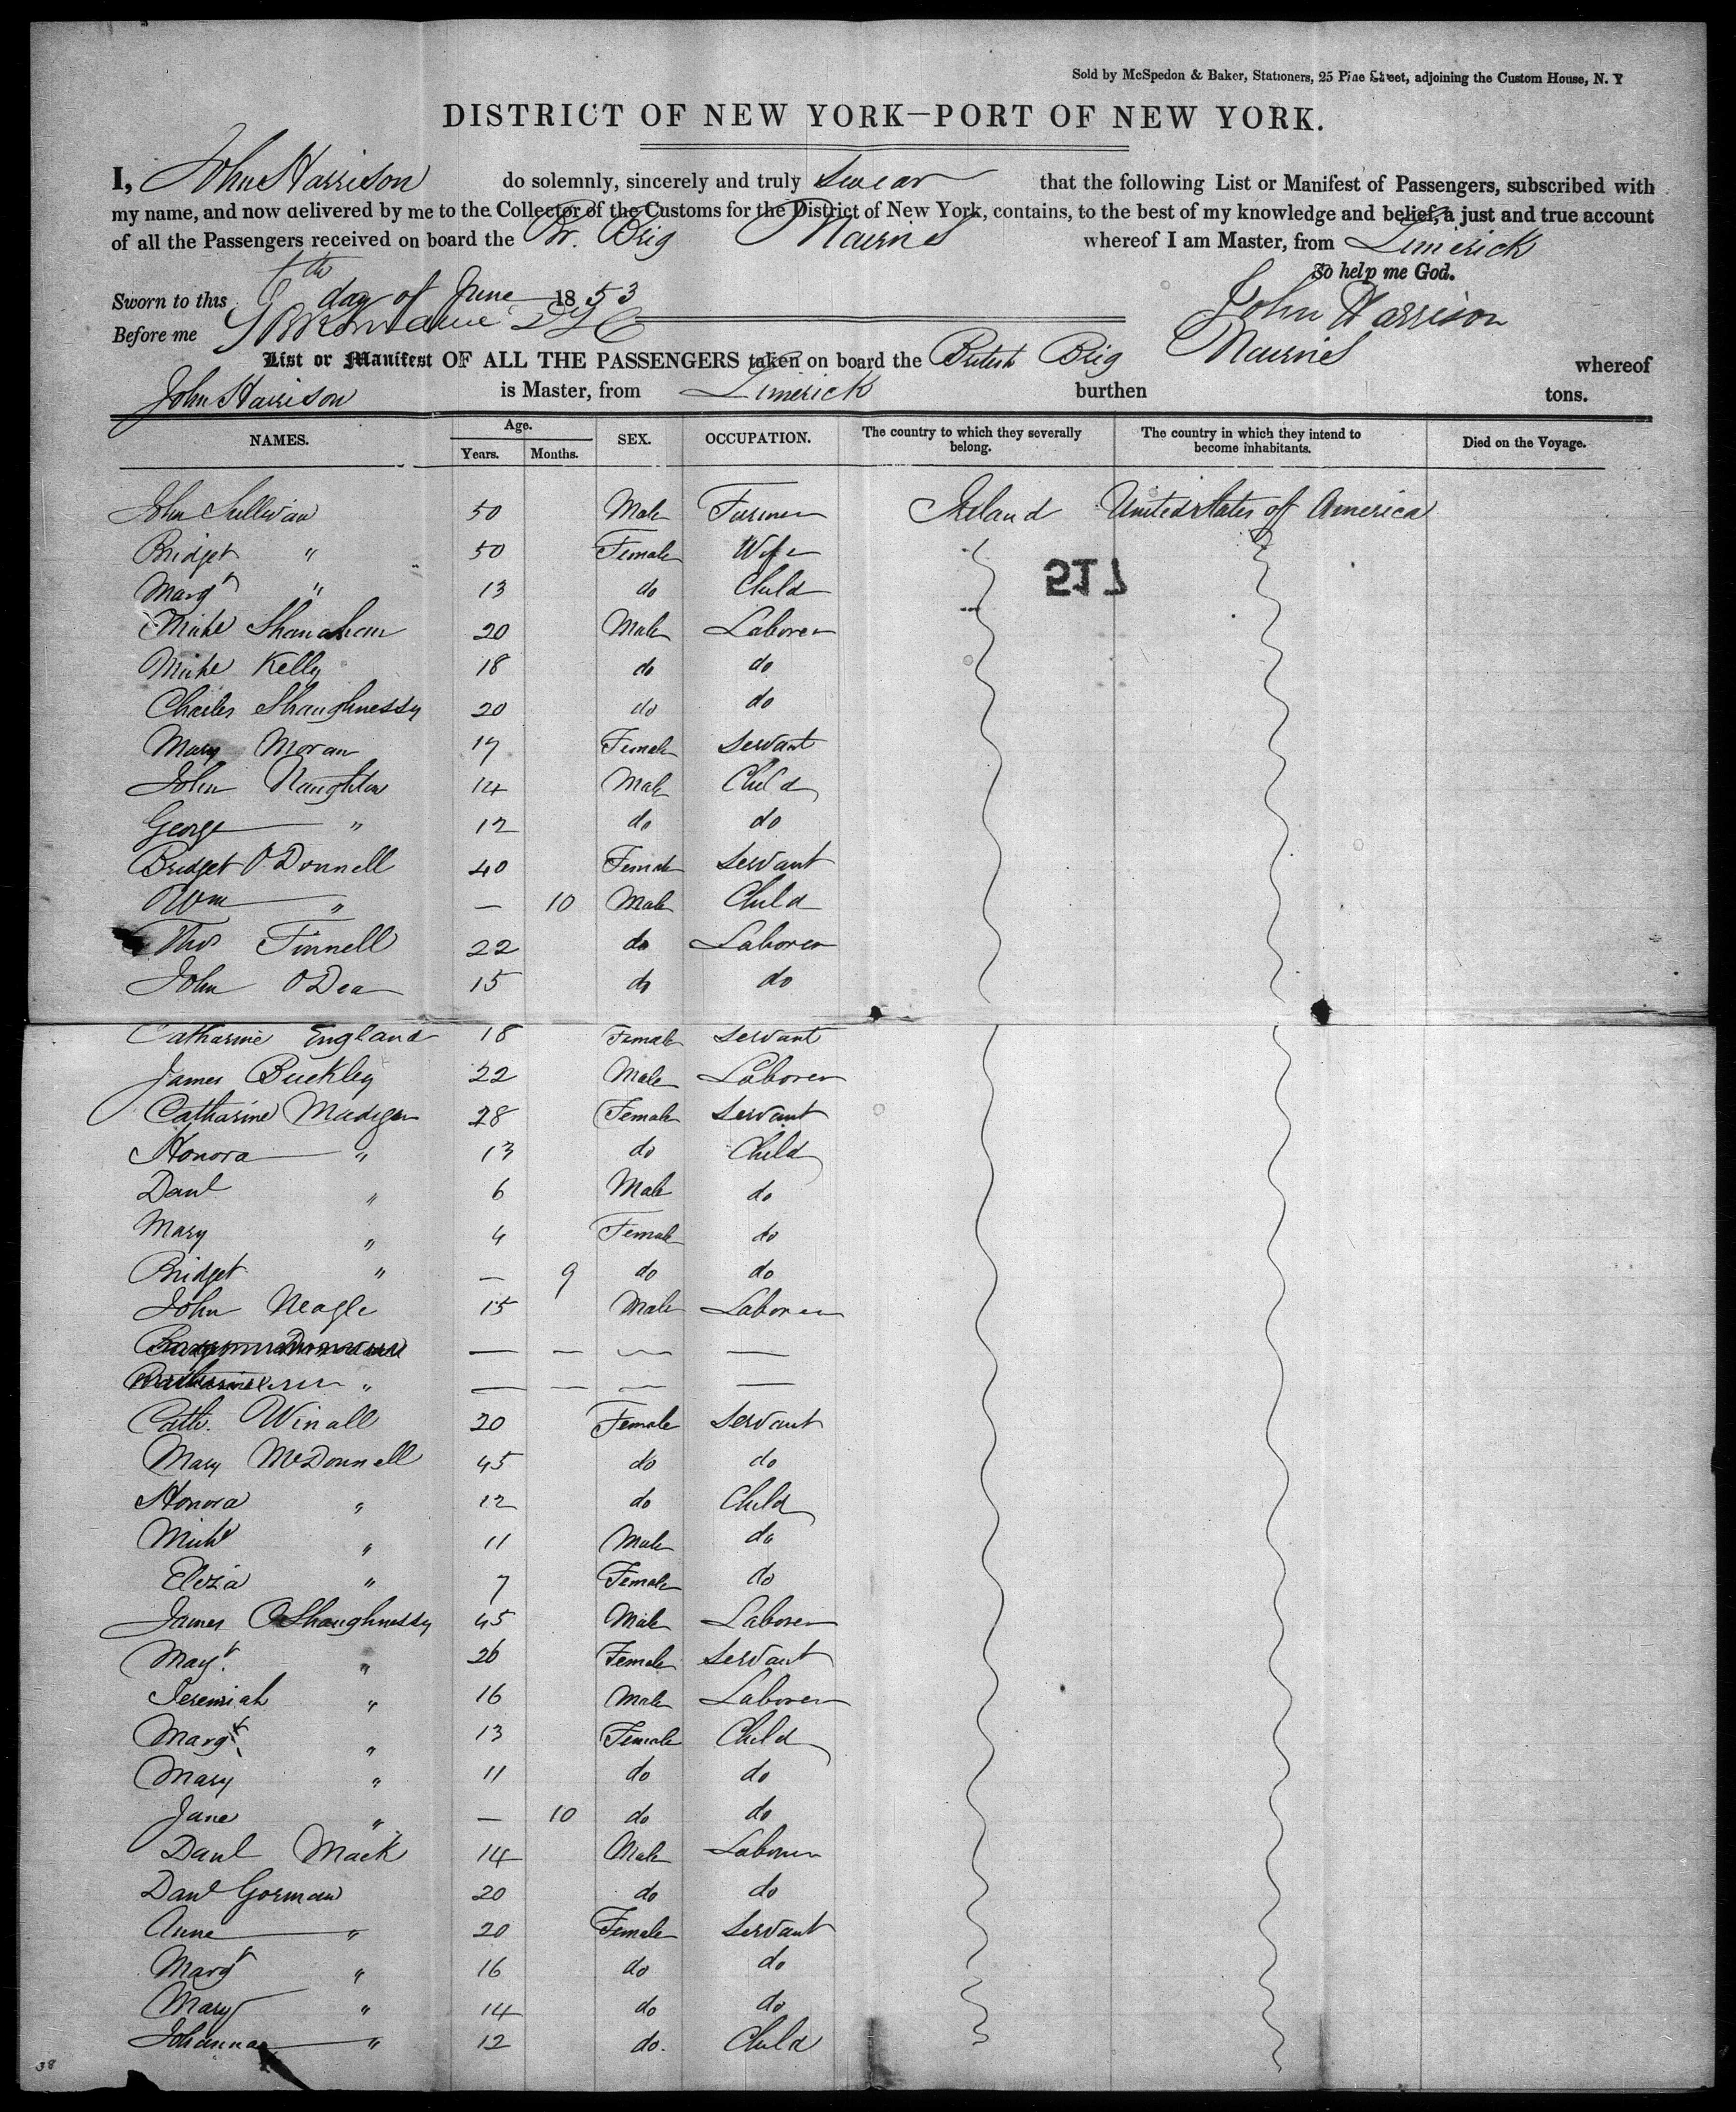 Sold by McSpedon & Baker, Stationers, 25 Pine Street, adjoining the Custom House, N. Y
DISTRICT OF NEW YORK—PORT OF NEW YORK.
I, John Harrison do solemnly, sincerely and truly swear that the following List or Manifest of Passengers, subscribed with
my name, and now delivered by me to the Collector of the Customs for the District of New York, contains, to the best of my knowledge and belief, a just and true account
of all the Passengers received on board the Br. Brig whereof I am Master, from Limerick
So help me God.
Sworn to this day of June 1853 John Harrison
Before me
List or Manifest OF ALL THE PASSENGERS taken on board the British Brig whereof
John Harrison is Master, from Limerick burthen tons.
NAMES. Age. Years. Months. SEX. OCCUPATION. The country to which they severally belong. The country in which they intend to become inhabitants. Died on the Voyage.
John Sullivan 50 Male Farmer Ireland United States of America
Bridget " 50 Female Wife
Margt " 13 do Child
517
Michl Shanahan 20 Male Laborer
Michl Kelly 18 do do
Charles Shaughnessy 20 do do
Mary Moran 17 Female Servant
John Naughton 14 Male Child
George " 12 do do
Bridget O'Donnell 40 Female Servant
Wm " — 10 Male Child
Thos Finnell 22 do Laborer
John O'Dea 15 do do
Catharine England 18 Female Servant
James Buckley 22 Male Laborer
Catharine Madigan 28 Female Servant
Honora " 13 do Child
Danl " 6 Male do
Mary " 4 Female do
Bridget " — 9 do do
John Neagle 15 Male Laborer
— — — —
" — — — —
Cath. Winall 20 Female Servant
Mary McDonnell 45 do do
Honora " 12 do Child
Michl " 11 Male do
Eliza " 7 Female do
James O'Shaughnessy 45 Male Laborer
Margt. " 26 Female Servant
Jeremiah " 16 Male Laborer
Margt " 13 Female Child
Mary " 11 do do
Jane " — 10 do do
Danl Mack 14 Male Laborer
Danl Gorman 20 do do
Anne " 20 Female Servant
Margt " 16 do do
Mary " 14 do do
Johanna " 12 do. Child
38